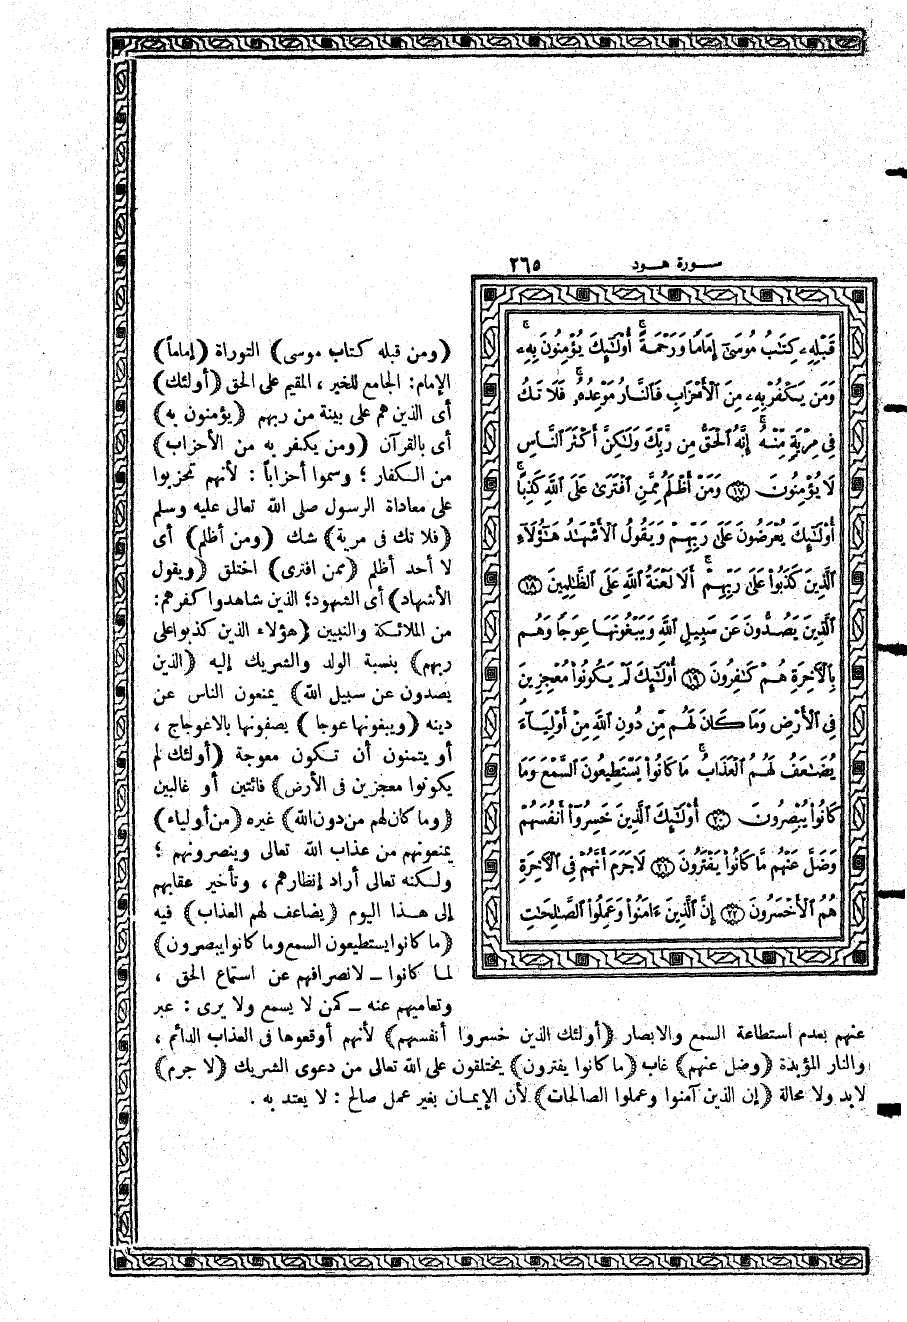 سورة هود ٢٦٥
قَبْلِهِۦ كِتَٰبُ مُوسَىٰٓ إِمَامًا وَرَحْمَةً ۚ أُو۟لَٰٓئِكَ يُؤْمِنُونَ بِهِۦ ۚ
وَمَن يَكْفُرْ بِهِۦ مِنَ ٱلْأَحْزَابِ فَٱلنَّارُ مَوْعِدُهُۥ ۚ فَلَا تَكُ
فِى مِرْيَةٍ مِّنْهُ ۚ إِنَّهُ ٱلْحَقُّ مِن رَّبِّكَ وَلَٰكِنَّ أَكْثَرَ ٱلنَّاسِ
لَا يُؤْمِنُونَ ﴿١٧﴾ وَمَنْ أَظْلَمُ مِمَّنِ ٱفْتَرَىٰ عَلَى ٱللَّهِ كَذِبًا ۚ
أُو۟لَٰٓئِكَ يُعْرَضُونَ عَلَىٰ رَبِّهِمْ وَيَقُولُ ٱلْأَشْهَٰدُ هَٰٓؤُلَآءِ
ٱلَّذِينَ كَذَبُوا۟ عَلَىٰ رَبِّهِمْ ۚ أَلَا لَعْنَةُ ٱللَّهِ عَلَى ٱلظَّٰلِمِينَ ﴿١٨﴾
ٱلَّذِينَ يَصُدُّونَ عَن سَبِيلِ ٱللَّهِ وَيَبْغُونَهَا عِوَجًا وَهُم
بِٱلْأٓخِرَةِ هُمْ كَٰفِرُونَ ﴿١٩﴾ أُو۟لَٰٓئِكَ لَمْ يَكُونُوا۟ مُعْجِزِينَ
فِى ٱلْأَرْضِ وَمَا كَانَ لَهُم مِّن دُونِ ٱللَّهِ مِنْ أَوْلِيَآءَ ۘ
يُضَٰعَفُ لَهُمُ ٱلْعَذَابُ ۚ مَا كَانُوا۟ يَسْتَطِيعُونَ ٱلسَّمْعَ وَمَا
كَانُوا۟ يُبْصِرُونَ ﴿٢٠﴾ أُو۟لَٰٓئِكَ ٱلَّذِينَ خَسِرُوٓا۟ أَنفُسَهُمْ
وَضَلَّ عَنْهُم مَّا كَانُوا۟ يَفْتَرُونَ ﴿٢١﴾ لَا جَرَمَ أَنَّهُمْ فِى ٱلْأٓخِرَةِ
هُمُ ٱلْأَخْسَرُونَ ﴿٢٢﴾ إِنَّ ٱلَّذِينَ ءَامَنُوا۟ وَعَمِلُوا۟ ٱلصَّٰلِحَٰتِ
(ومن قبله كتاب موسى) التوراة (إماماً)
الإمام: الجامع للخير ، المقيم على الحق (أولئك)
أى الذين هم على بينة من ربهم (يؤمنون به)
أى بالقرآن (ومن يكفر به من الأحزاب)
من الكفار ؛ وسموا أحزاباً : لأنهم تحزبوا
على معاداة الرسول صلى الله تعالى عليه وسلم
(فلا تك فى مرية) شك (ومن أظلم) أى
لا أحد أظلم (ممن افترى) اختلق (ويقول
الأشهاد) أى الشهود؛ الذين شاهدوا كفرهم:
من الملائكة والنبيين (هؤلاء الذين كذبوا على
ربهم) بنسبة الولد والشريك إليه (الذين
يصدون عن سبيل الله) يمنعون الناس عن
دينه (ويبغونها عوجا) يصفونها بالاعوجاج ،
أو يتمنون أن تكون معوجة (أولئك لم
يكونوا معجزين فى الأرض) فائتين أو غالبين
(وما كان لهم من دون الله) غيره (من أولياء)
يمنعونهم من عذاب الله تعالى وينصرونهم ؛
ولكنه تعالى أراد إنظارهم ، وتأخير عقابهم
إلى هذا اليوم (يضاعف لهم العذاب) فيه
(ما كانوا يستطيعون السمع وما كانوا يبصرون)
لما كانوا ــ لانصرافهم عن استماع الحق ،
وتعاميهم عنه ــ كمن لا يسمع ولا يرى : عبر
عنهم بعدم استطاعة السمع والابصار (أولئك الذين خسروا أنفسهم) لأنهم أوقعوها فى العذاب الدائم ،
والنار المؤبدة (وضل عنهم) غاب (ما كانوا يفترون) يختلقون على الله تعالى من دعوى الشريك (لا جرم)
لابد ولا محالة (إن الذين آمنوا وعملوا الصالحات) لأن الإيمان بغير عمل صالح : لا يعتد به .